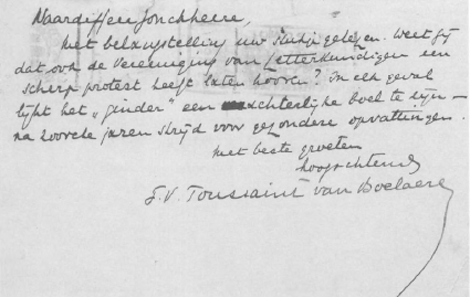 Waarde Heer Jonckheere,
Met belangstelling uw stukje gelezen. Weet gij
dat ook de Vereeniging van Letterkundigen een
scherp protest heeft laten hooren? In elk geval
lijkt het „ginder” een achterlijke boel te zijn —
na zoovele jaren strijd voor gezondere opvattingen.
Met beste groeten
hoogachtend
F.V. Toussaint van Boelaere